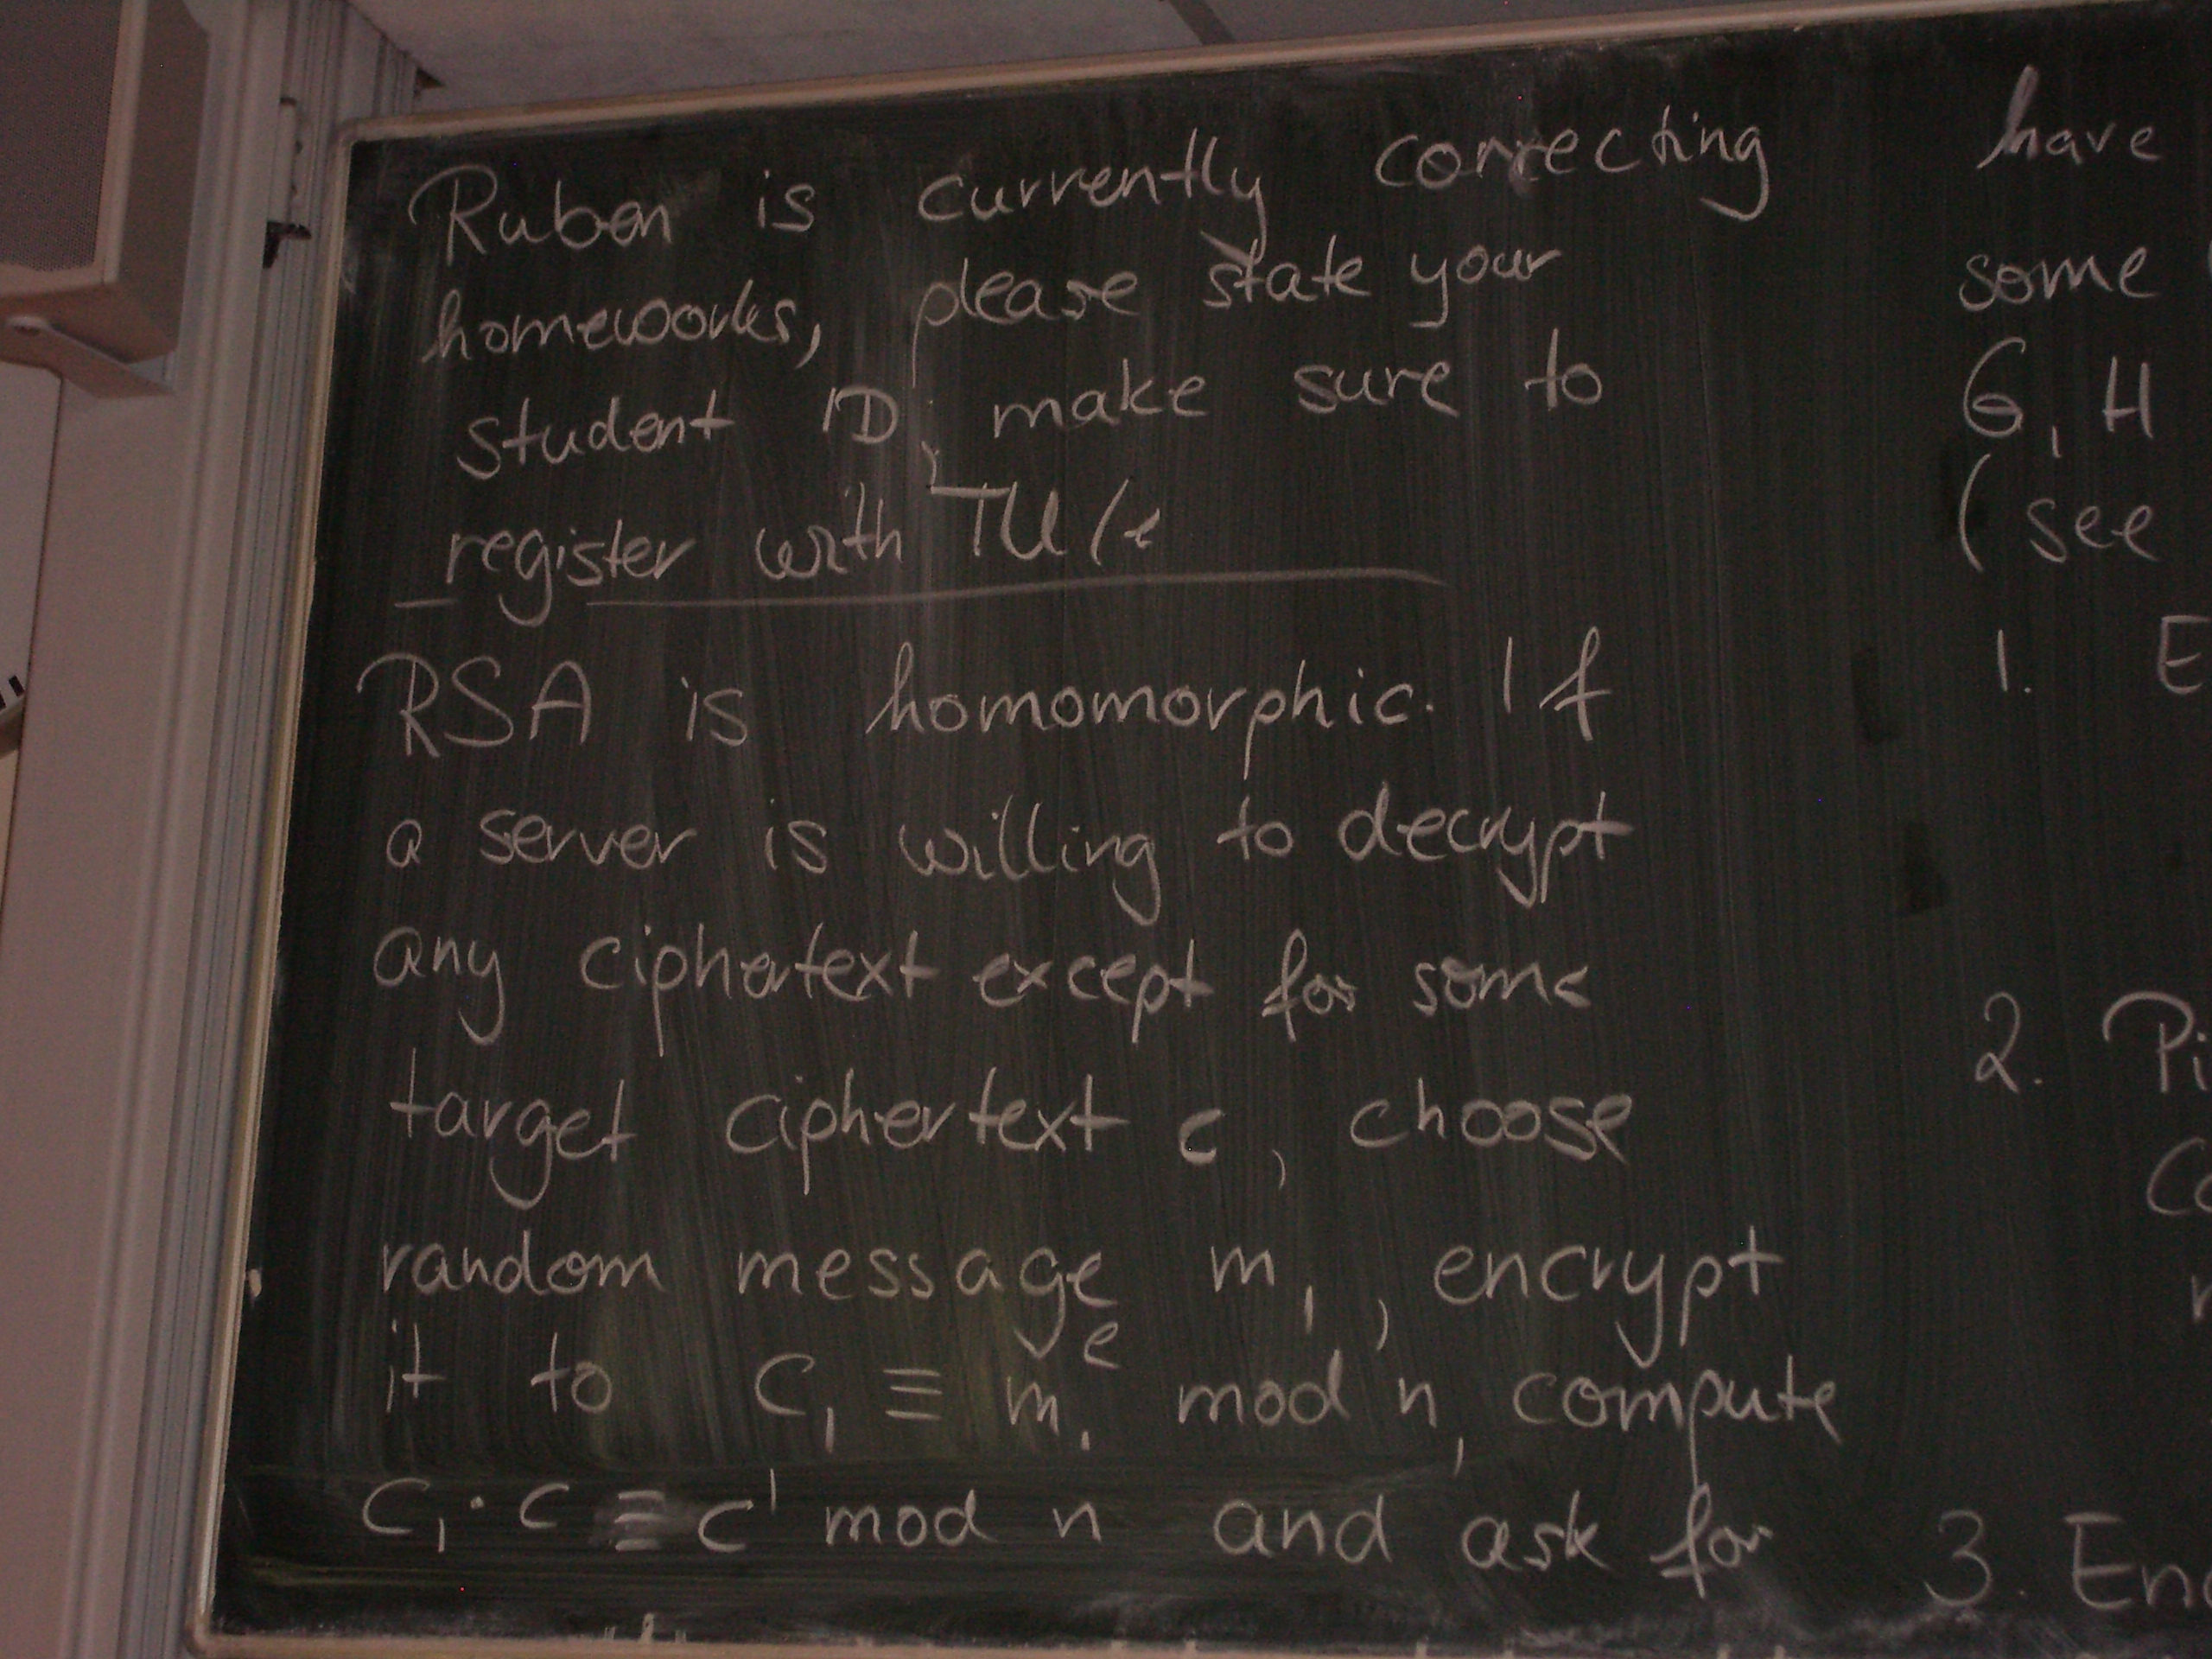 Ruben is currently correcting
homeworks, please state your
student ID, make sure to
register with TU/e
RSA is homomorphic. If
a server is willing to decrypt
any ciphertext except for some
target ciphertext c, choose
random message m₁, encrypt
it to C₁ ≡ m₁ᵉ mod n, compute
C₁ · C ≡ C' mod n and ask for
have
some
G, H
(see
1. E
2. Pi
Co
3. Enc